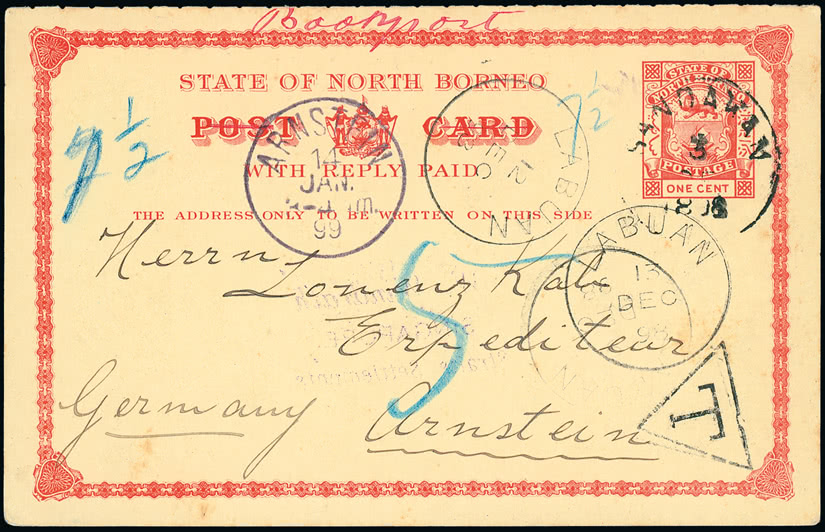 Bookpost
STATE OF NORTH BORNEO
POST CARD
WITH REPLY PAID
THE ADDRESS ONLY TO BE WRITTEN ON THIS SIDE
STATE OF
NORTH BORNEO
POSTAGE
ONE CENT
SANDAKAN
ARNSTEIN
14
JAN.
99
LABUAN
12
DEC
LABUAN
13
DEC
98
7 1/2
7 1/2
5
Herrn
Lorenz Kalb
Expediteur
Germany Arnstein
T